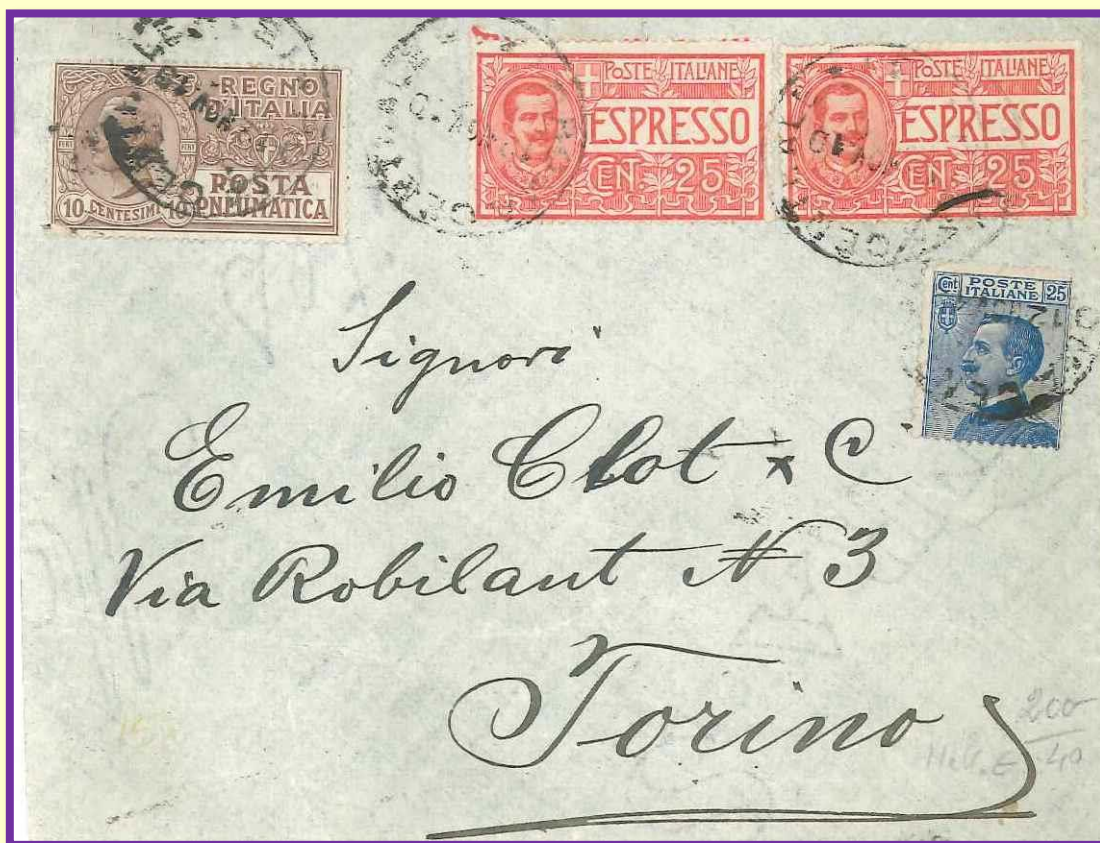 REGNO
D'ITALIA
POSTA
PNEUMATICA
10 CENTESIMI 10
POSTE ITALIANE
ESPRESSO
CEN. 25
POSTE ITALIANE
ESPRESSO
CEN. 25
Cent POSTE ITALIANE 25
Signori
Emilio Clot & C
Via Robilant N 3
Torino
200
40